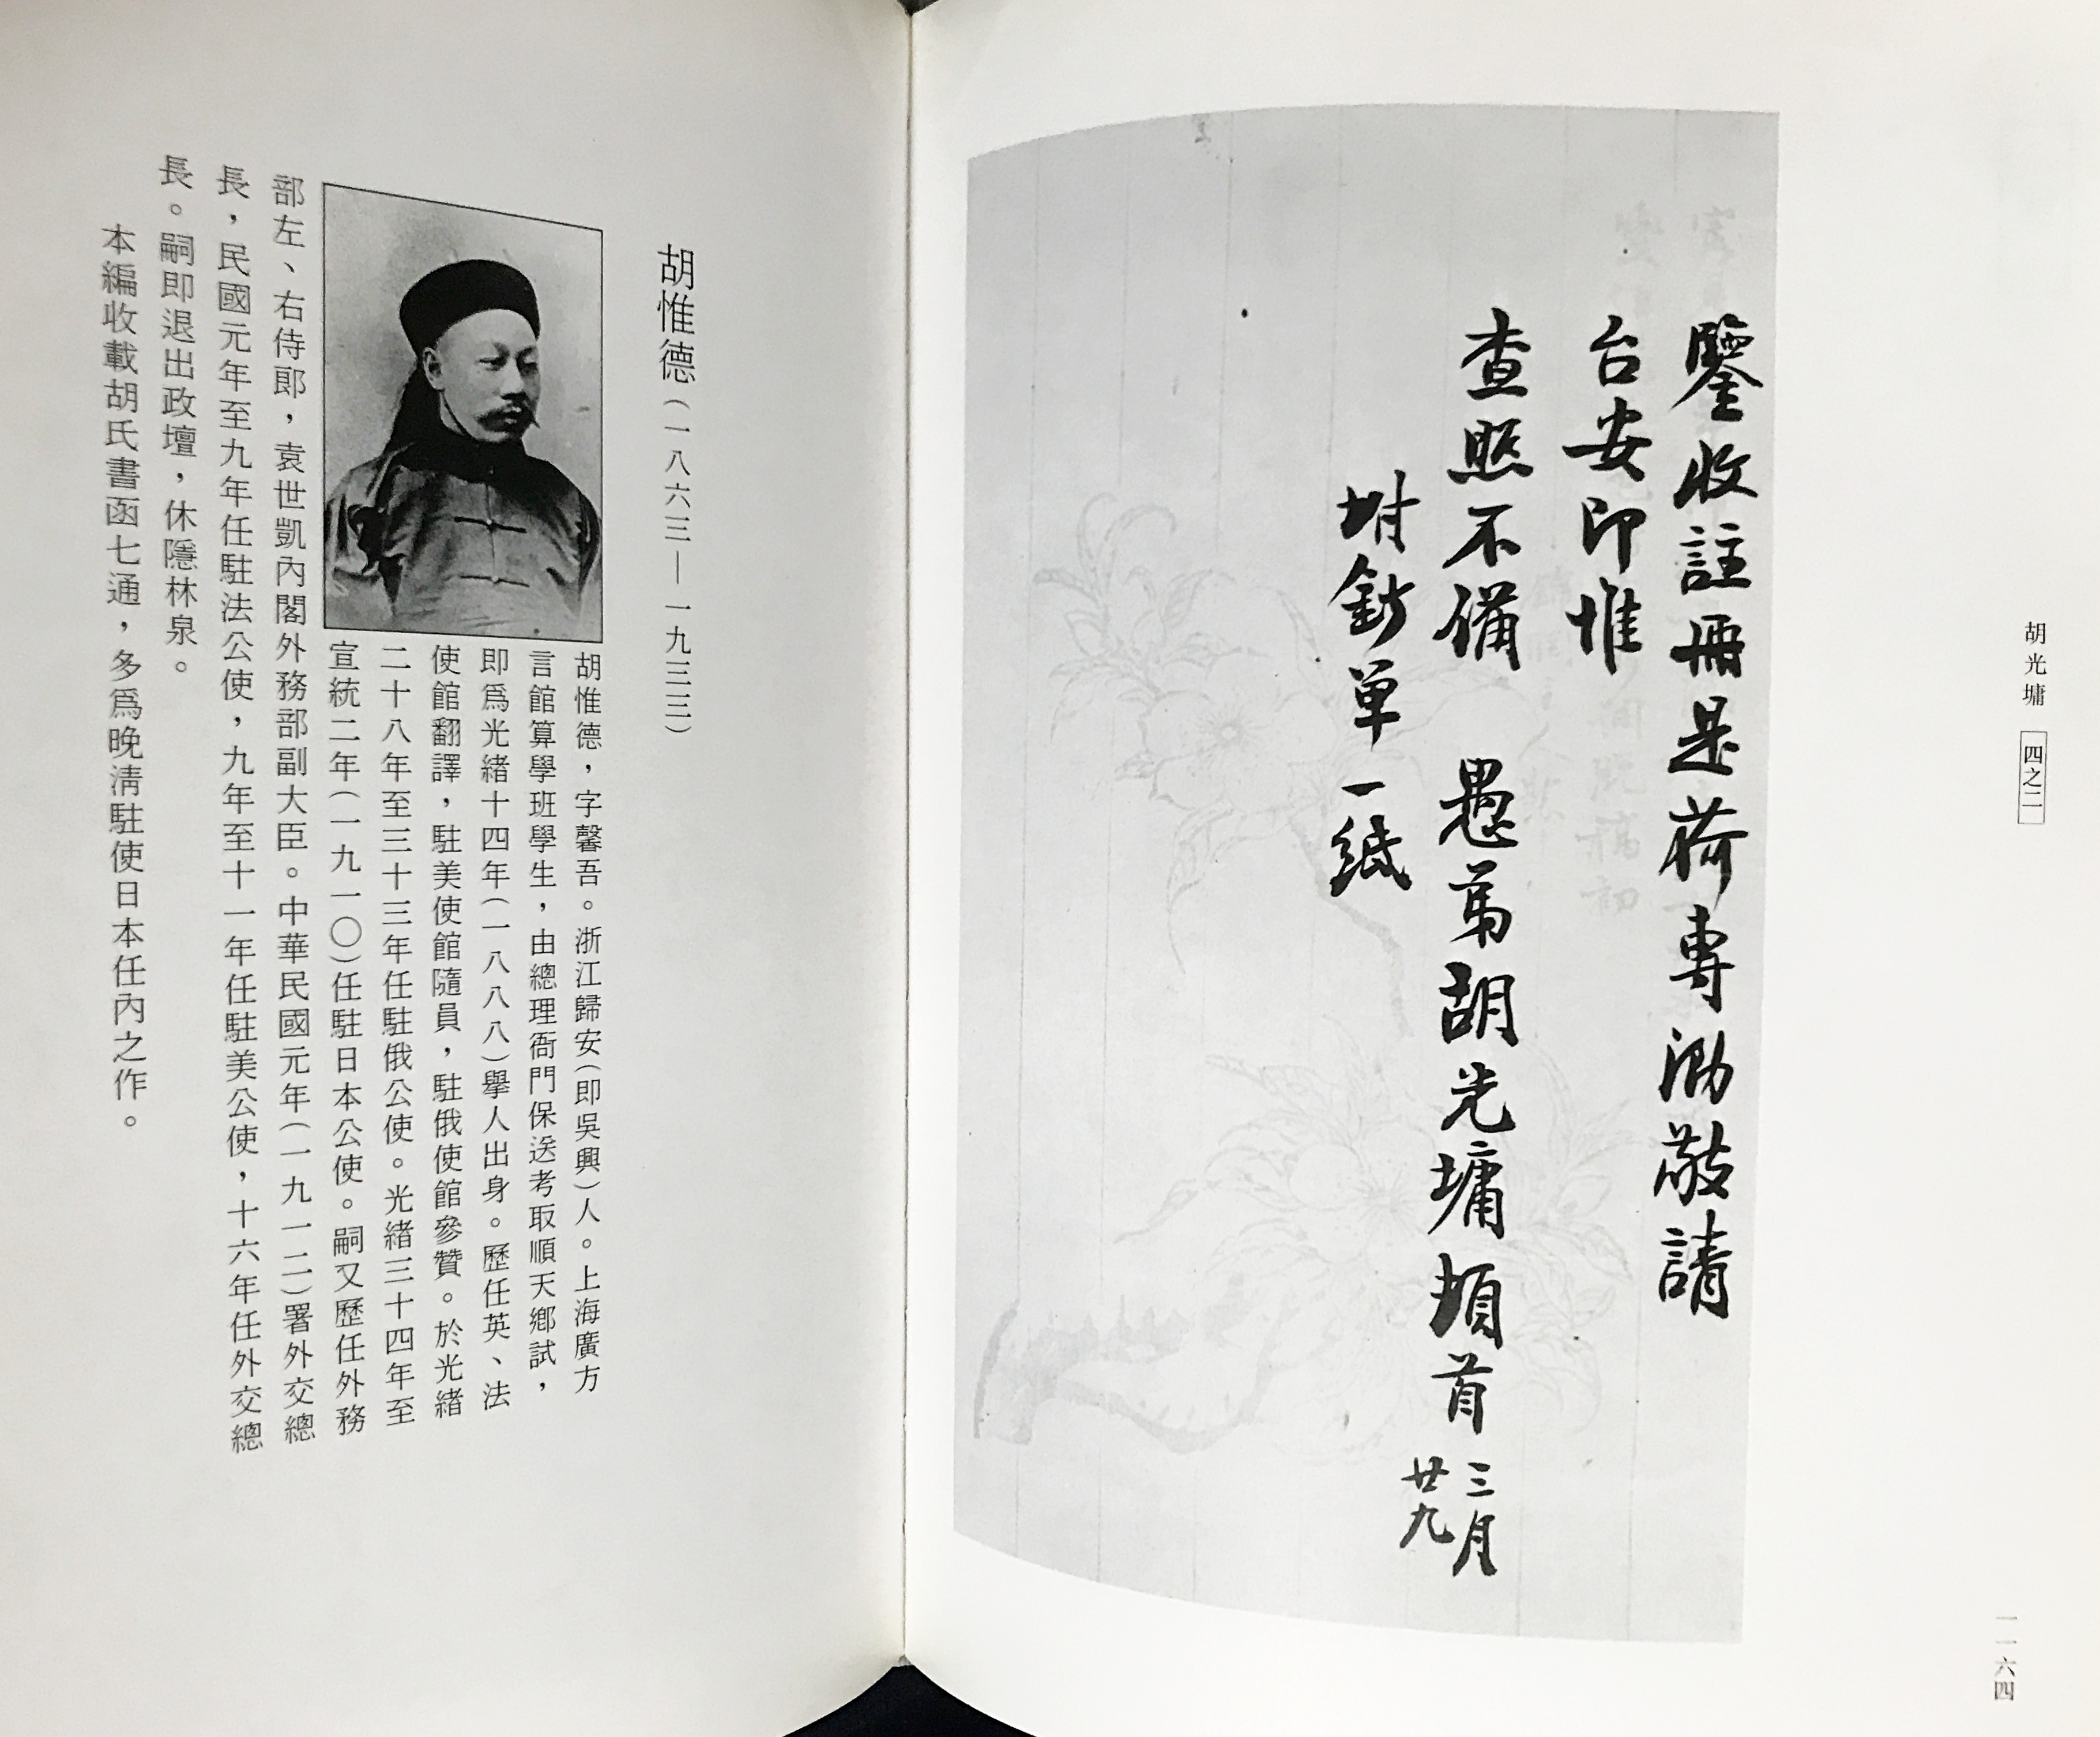 胡光墉 四之二
鑒收註冊是荷專泐敬請
台安即惟
查照不備 愚弟胡光墉頓首 三月
廿九
坿鈔单一紙
一一六四
胡惟德（一八六三—一九三三）
胡惟德，字馨吾。浙江歸安（即吳興）人。上海廣方
言館算學班學生，由總理衙門保送考取順天鄉試，
即爲光緒十四年（一八八八）舉人出身。歷任英、法
使館翻譯，駐美使館隨員，駐俄使館參贊。於光緒
二十八年至三十三年任駐俄公使。光緒三十四年至
宣統二年（一九一〇）任駐日本公使。嗣又歷任外務
部左、右侍郎，袁世凱內閣外務部副大臣。中華民國元年（一九一二）署外交總
長，民國元年至九年任駐法公使，九年至十一年任駐美公使，十六年任外交總
長。嗣即退出政壇，休隱林泉。
本編收載胡氏書函七通，多爲晚清駐使日本任內之作。